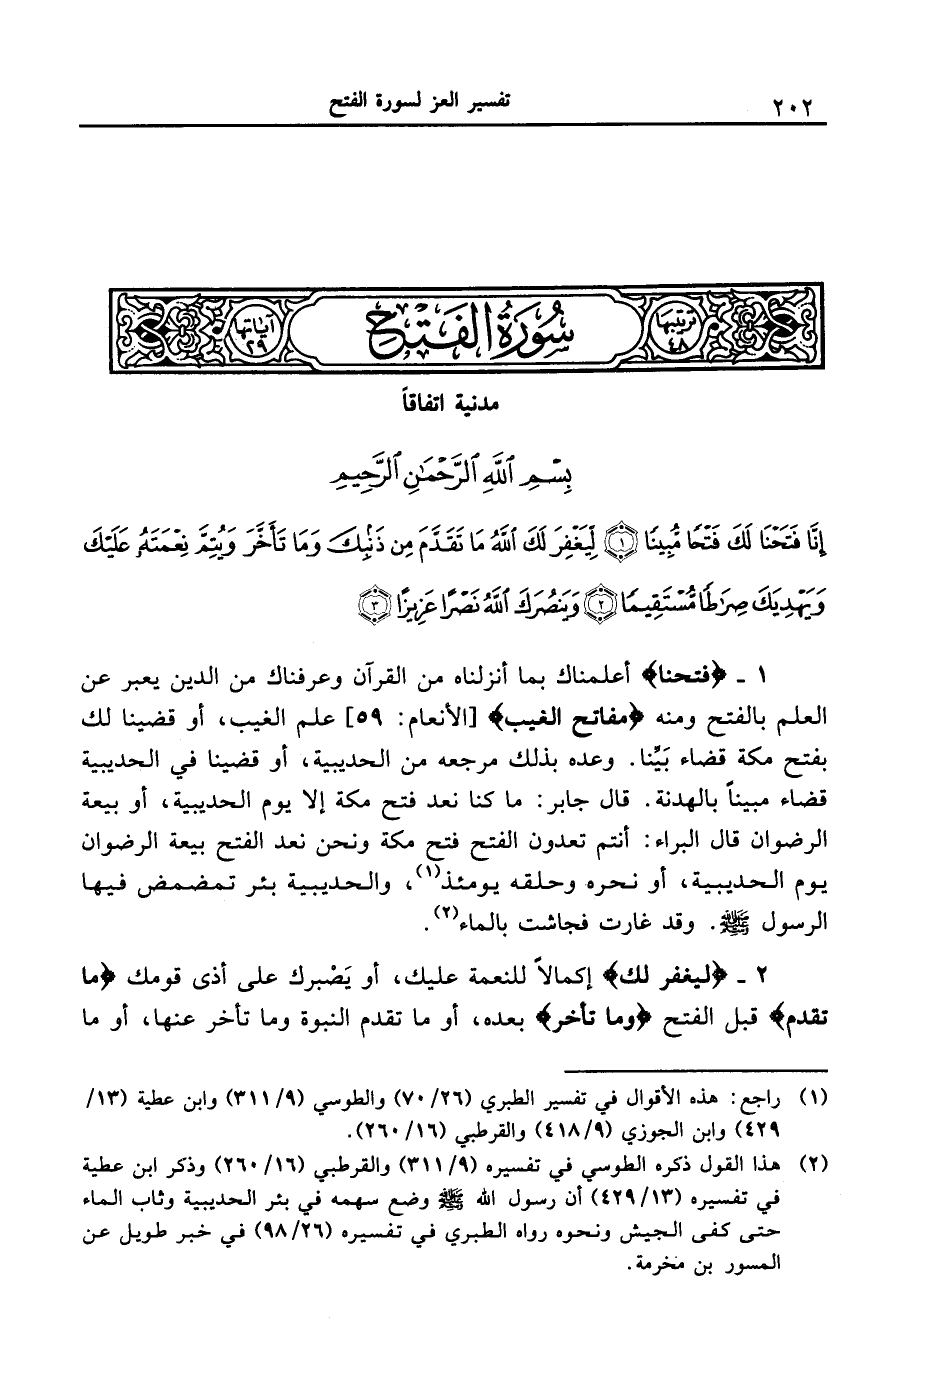 ٢٠٢
تفسير العز لسورة الفتح
ترتيبها ٤٨
سُورَةُ الفَتْحِ
آياتها ٢٩
مدنية اتفاقاً
بِسْمِ ٱللَّهِ ٱلرَّحْمَٰنِ ٱلرَّحِيمِ
إِنَّا فَتَحْنَا لَكَ فَتْحًا مُّبِينًا ١ لِّيَغْفِرَ لَكَ ٱللَّهُ مَا تَقَدَّمَ مِن ذَنۢبِكَ وَمَا تَأَخَّرَ وَيُتِمَّ نِعْمَتَهُۥ عَلَيْكَ
وَيَهْدِيَكَ صِرَٰطًا مُّسْتَقِيمًا ٢ وَيَنصُرَكَ ٱللَّهُ نَصْرًا عَزِيزًا ٣
١ ـ ﴿فتحنا﴾ أعلمناك بما أنزلناه من القرآن وعرفناك من الدين يعبر عن
العلم بالفتح ومنه ﴿مفاتح الغيب﴾ [الأنعام: ٥٩] علم الغيب، أو قضينا لك
بفتح مكة قضاء بَيِّنا. وعده بذلك مرجعه من الحديبية، أو قضينا في الحديبية
قضاء مبيناً بالهدنة. قال جابر: ما كنا نعد فتح مكة إلا يوم الحديبية، أو بيعة
الرضوان قال البراء: أنتم تعدون الفتح فتح مكة ونحن نعد الفتح بيعة الرضوان
يوم الحديبية، أو نحره وحلقه يومئذ(١)، والحديبية بئر تمضمض فيها
الرسول ﷺ. وقد غارت فجاشت بالماء(٢).
٢ ـ ﴿ليغفر لك﴾ إكمالاً للنعمة عليك، أو يَصْبرك على أذى قومك ﴿ما
تقدم﴾ قبل الفتح ﴿وما تأخر﴾ بعده، أو ما تقدم النبوة وما تأخر عنها، أو ما
(١) راجع: هذه الأقوال في تفسير الطبري (٧٠/٢٦) والطوسي (٣١١/٩) وابن عطية (١٣/
٤٢٩) وابن الجوزي (٤١٨/٩) والقرطبي (٢٦٠/١٦).
(٢) هذا القول ذكره الطوسي في تفسيره (٣١١/٩) والقرطبي (٢٦٠/١٦) وذكر ابن عطية
في تفسيره (٤٢٩/١٣) أن رسول الله ﷺ وضع سهمه في بئر الحديبية وثاب الماء
حتى كفى الجيش ونحوه رواه الطبري في تفسيره (٩٨/٢٦) في خبر طويل عن
المسور بن مخرمة.